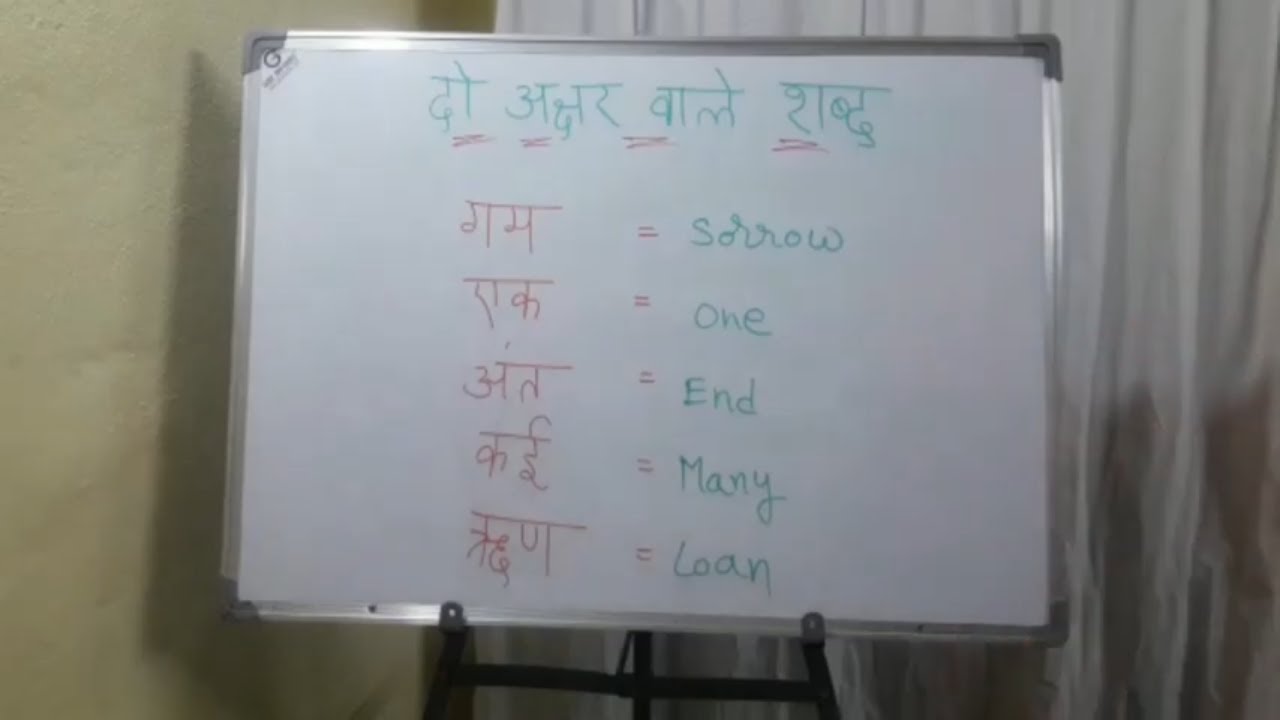 दो अक्षर वाले शब्द
गम = Sorrow
एक = One
अंत = End
कई = Many
ऋण = Loan